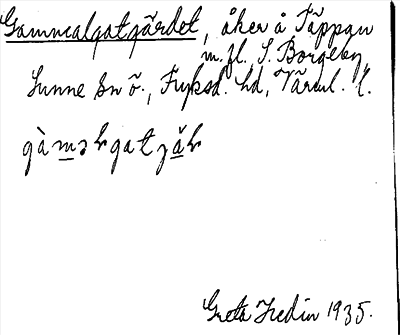 Gammalgatgärdet, åker å Täppan
m. fl. S. Borgeby,
Sunne sn ö., Fryksd. hd, Värml. l.
gàməlgatjäl
Greta Hedin 1935.